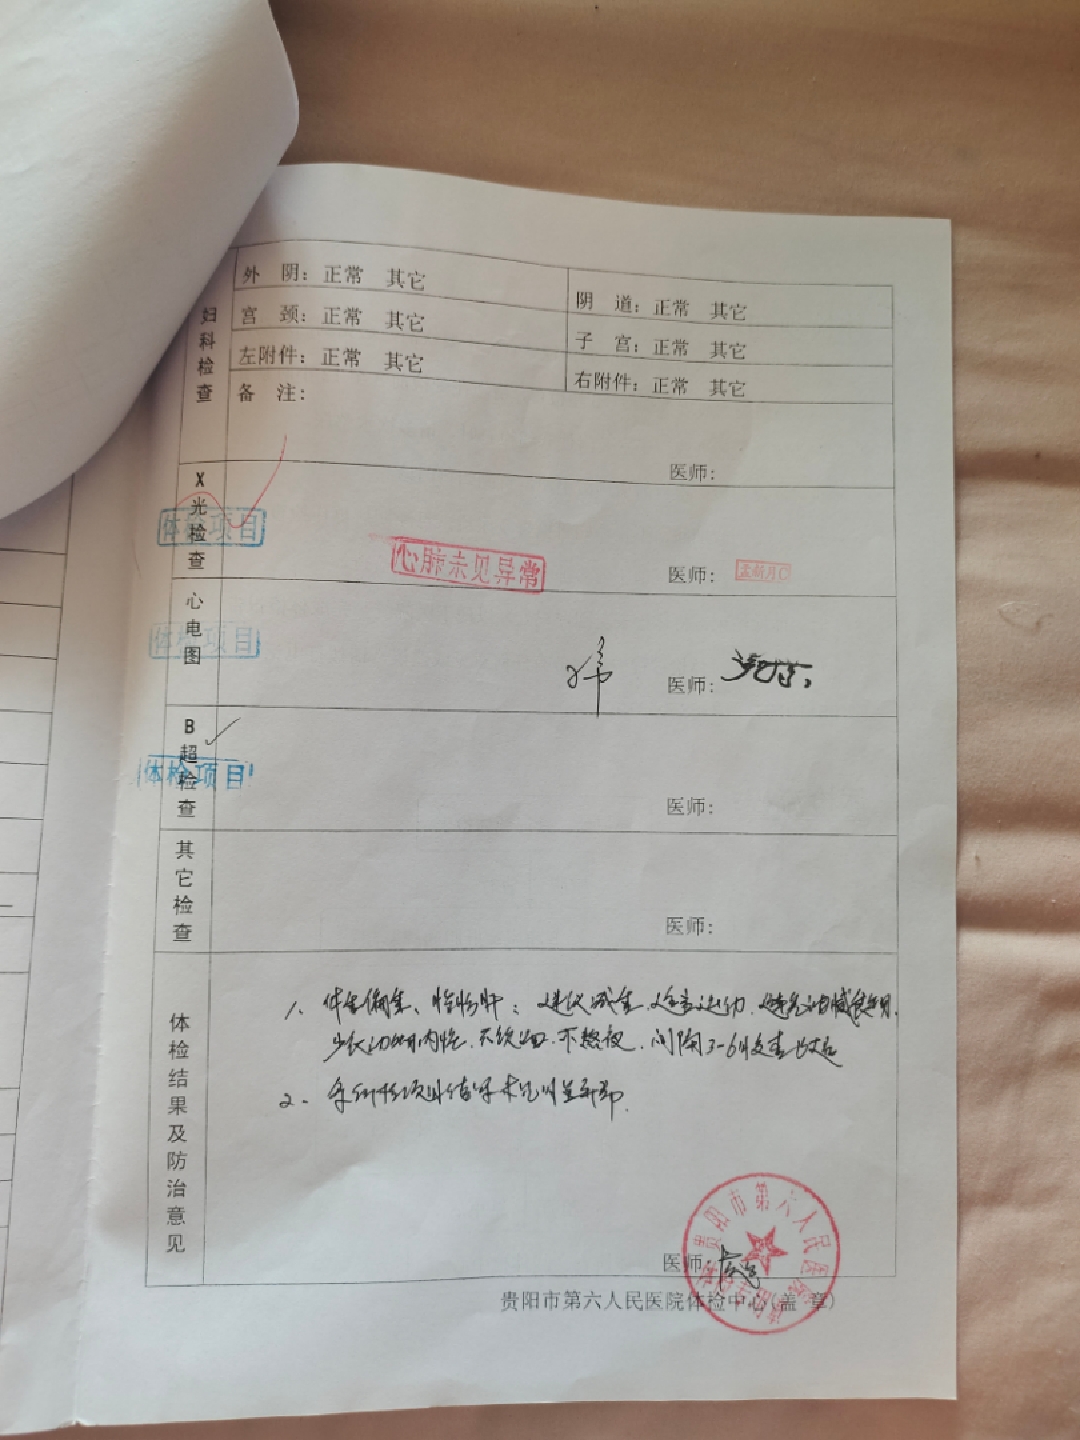 妇科检查
外 阴：正常 其它
阴 道：正常 其它
宫 颈：正常 其它
子 宫：正常 其它
左附件：正常 其它
右附件：正常 其它
备 注：
医师：
X光检查
体检项目
心肺未见异常
医师：
心电图
体检项目
医师：
B超检查
体检项目
医师：
其它检查
医师：
体检结果及防治意见
1、体重偏重、脂肪肝：建议减重，适当运动，
少 内脏，不 酒，不熬夜，间隔3-6月复查
2、 检项目结果未见明显异常
医师：
贵阳市第六人民医院
贵阳市第六人民医院体检中心（盖 章）